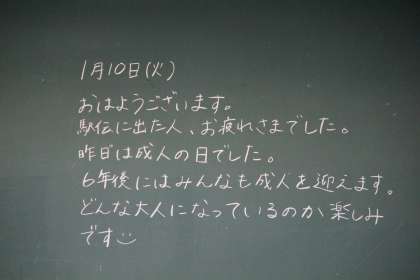 1月10日(火)
おはようございます。
駅伝に出た人、お疲れさまでした。
昨日は成人の日でした。
6年後にはみんなも成人を迎えます。
どんな大人になっているのか楽しみ
です